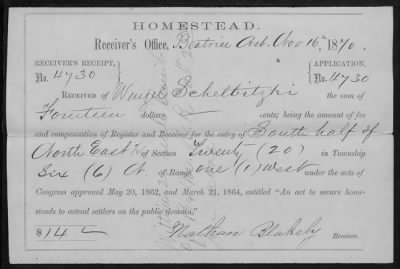 HOMESTEAD.
Receiver's Office, Beatrice Neb. Nov 16th 1870.
RECEIVER'S RECEIPT, APPLICATION,
No. 4730 No. 4730
RECEIVED OF Wenzel Schelbitzki the sum of
Fourteen dollars cents; being the amount of fee
and compensation of Register and Receiver for the entry of South half of
North East 1/4 of Section Twenty (20) in Township
Six (6) N. of Range one (1) West under the acts of
Congress approved May 20, 1862, and March 21, 1864, entitled "An act to secure home-
steads to actual settlers on the public domain."
$14 Nathan Blakely Receiver.